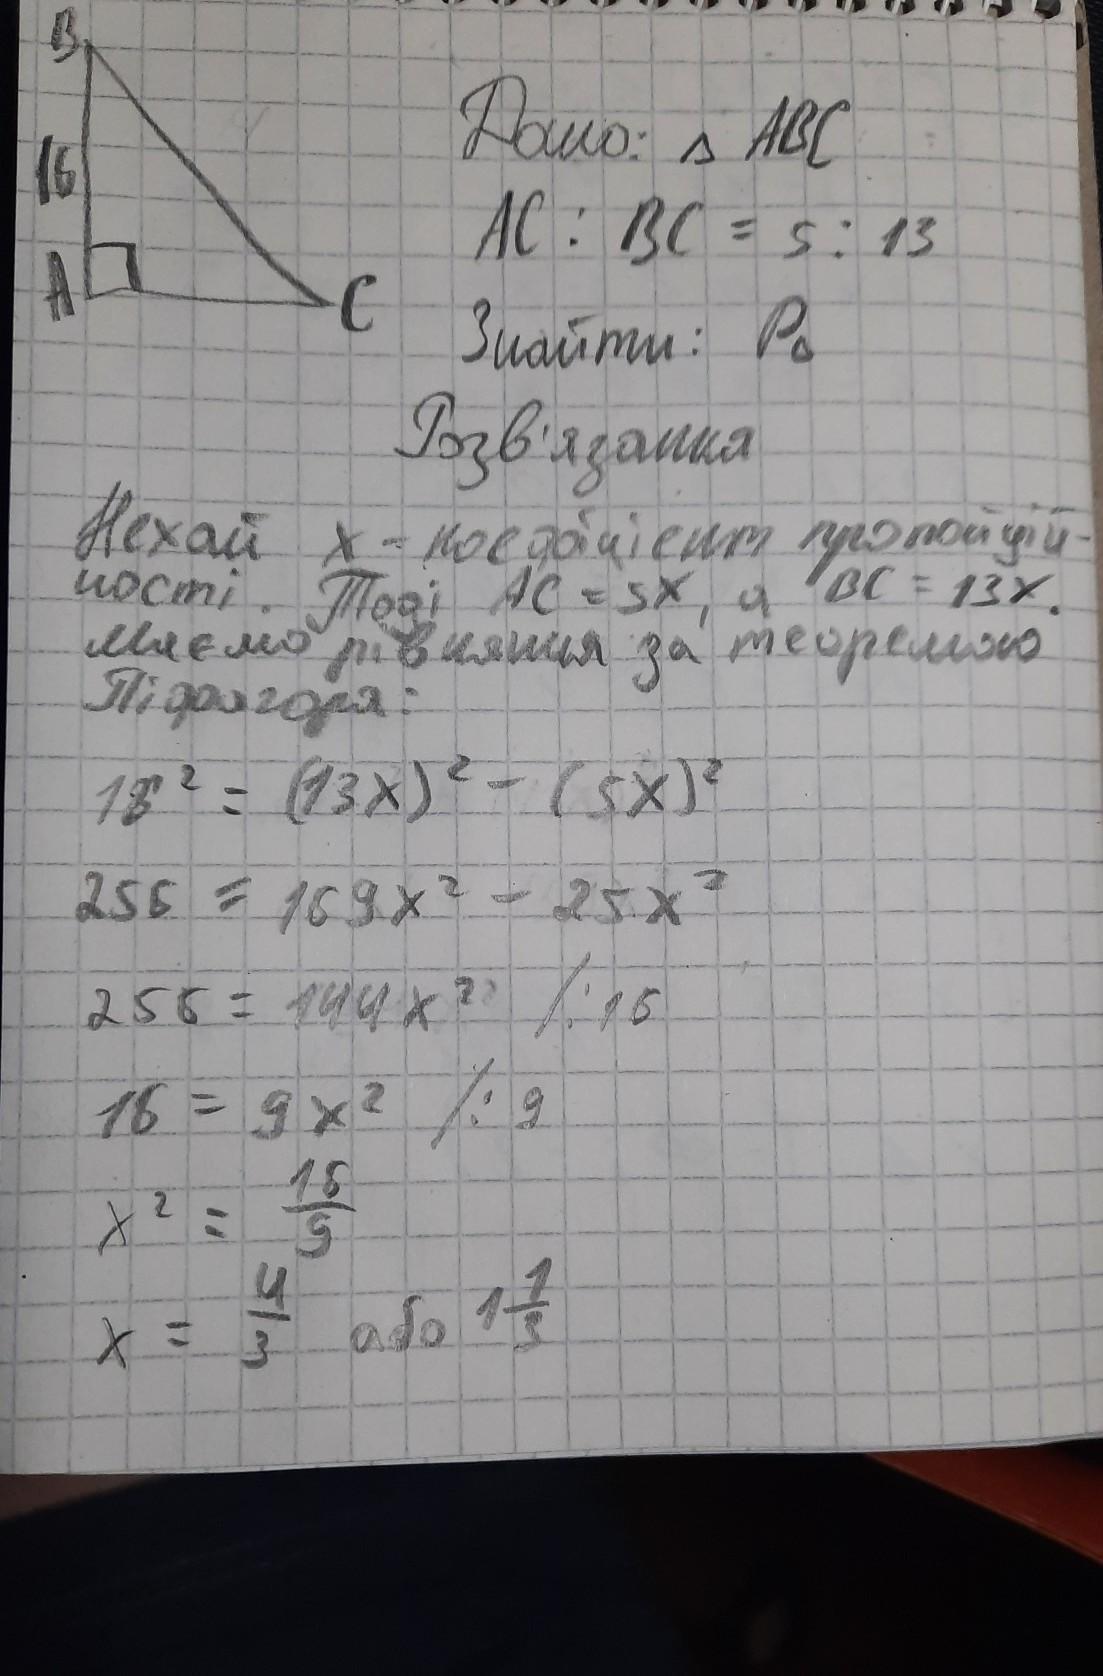 B
16
A
C
Дано: △ ABC
AC : BC = 5 : 13
Знайти: P△
Розв'язання
Нехай x - коефіцієнт пропорцій-
ності. Тоді AC = 5x, а BC = 13x.
Маємо рівняння за теоремою
Піфагора:
16² = (13x)² - (5x)²
256 = 169x² - 25x²
256 = 144x² /:16
16 = 9x² /:9
x² = 16/9
x = 4/3 або 1 1/3